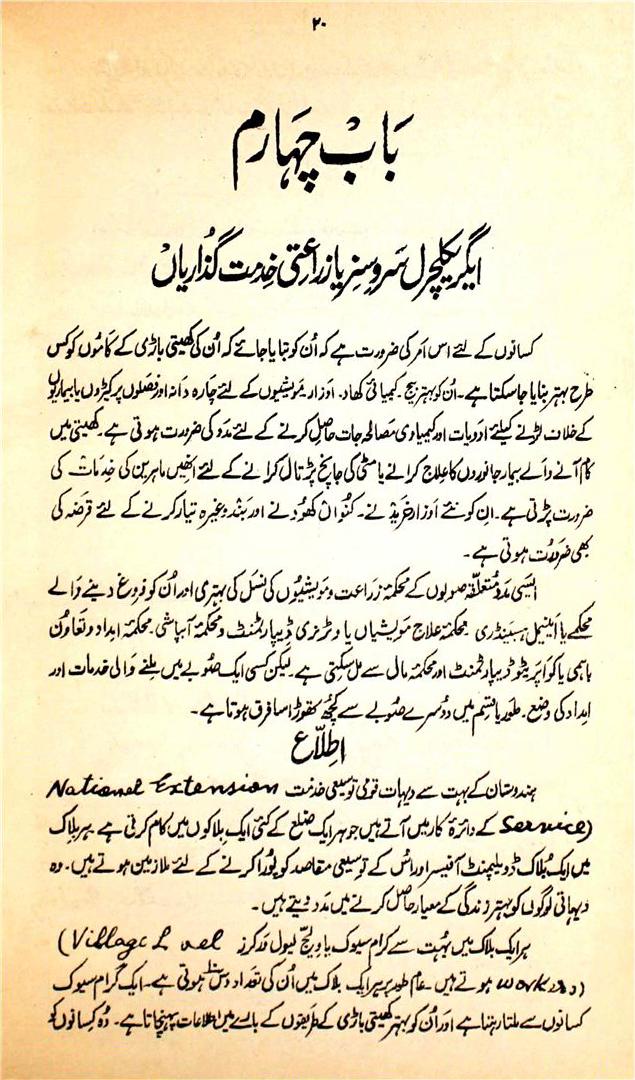 ۲۰
باب چہارم
ایگریکلچرل سروسنز یا زراعتی خدمت گذاریاں
کسانوں کے لئے اس امر کی ضرورت ہے کہ اُن کو بتایا جائے کہ اُن کی کھیتی باڑی کے کاموں کو کس
طرح بہتر بنایا جا سکتا ہے۔ اُن کو بہتر بیج۔ کیمیائی کھاد۔ اوزار مویشیوں کے لئے چارہ دانہ اور فصلوں پر کیڑوں یا بیماریوں
کے خلاف لڑنے کیلئے ادویات اور کیمیاوی مصالحہ جات حاصل کرنے کے لئے مدد کی ضرورت ہوتی ہے۔ کھیتی میں
کام آنے والے بیمار جانوروں کا علاج کرانے یا مٹی کی جانچ پڑتال کرانے کے لئے انھیں ماہرین کی خدمات کی
ضرورت پڑتی ہے۔ ان کو نئے اوزار خریدنے۔ کنواں کھودنے اور بند وغیرہ تیار کرنے کے لئے قرضہ کی
بھی ضرورت ہوتی ہے۔
ایسی مدد متعلقہ صوبوں کے محکمۂ زراعت و مویشیوں کی نسل کی بہتری اور اُن کو فروغ دینے والے
محکمے یا اینیمل ہسبینڈری۔ محکمۂ علاج مویشیاں یا وٹرنری ڈیپارٹمنٹ و محکمۂ آبپاشی۔ محکمۂ امداد و تعاون
باہمی یا کواپریٹو ڈیپارٹمنٹ اور محکمۂ مالی سے مل سکتی ہے۔ لیکن کسی ایک صوبے میں ملنے والی خدمات اور
امداد کی وضع۔ طور یا قسم میں دوسرے صوبے سے کچھ تھوڑا سا فرق ہوتا ہے۔
اطلاع
ہندوستان کے بہت سے دیہات قومی توسیعی خدمت National Extension
Service) کے دائرۂ کار میں آتے ہیں جو ہر ایک ضلع کے کئی ایک بلاکوں میں کام کرتی ہے۔ ہر بلاک
میں ایک بلاک ڈویلپمنٹ آفیسر اور اس کے توسیعی مقاصد کو پورا کرنے کے لئے ملازمین ہوتے ہیں۔ وہ
دیہاتی لوگوں کو بہتر زندگی کے معیار حاصل کرنے میں مدد دیتے ہیں۔
ہر ایک بلاک میں بہت سے گرام سیوک یا ویلیج لیول ورکرز (Village Level
workers) ہوتے ہیں۔ عام طور پر ہر ایک بلاک میں اُن کی تعداد دس ہوتی ہے۔ ایک گرام سیوک
کسانوں سے ملتا رہتا ہے اور اُن کو بہتر کھیتی باڑی کے طریقوں کے بارے میں اطلاعات پہنچاتا ہے۔ وہ کسانوں کو